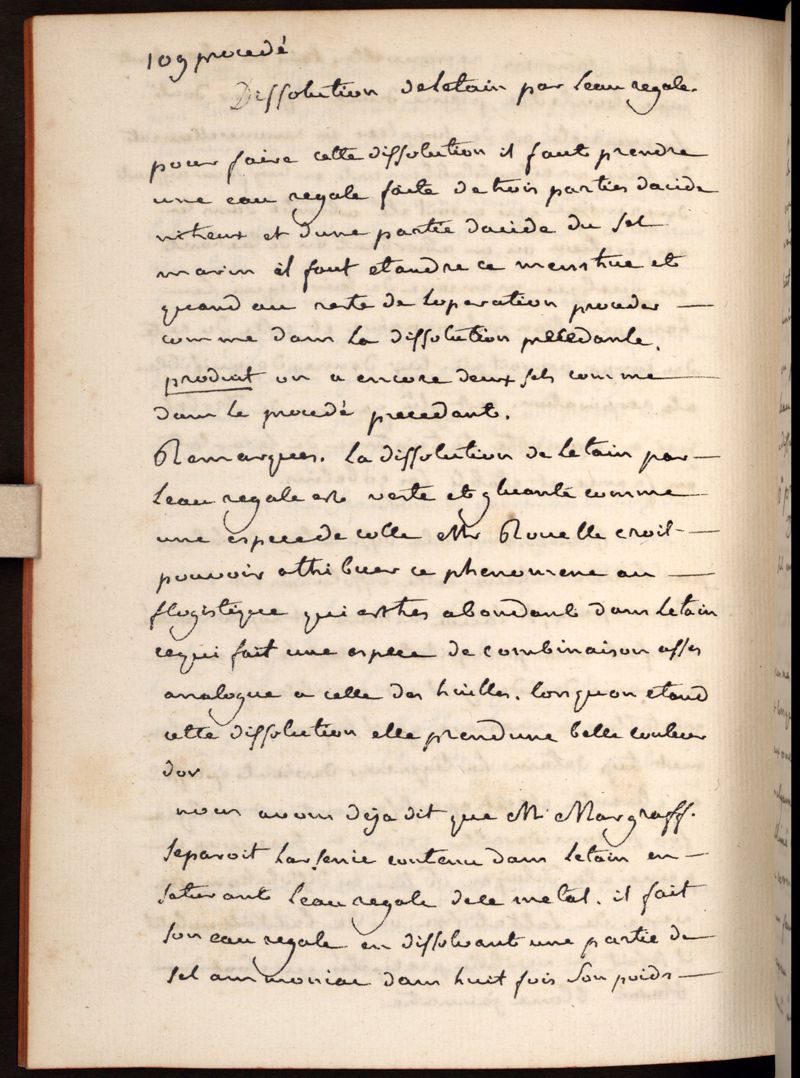 109 procedé
Dissolution deletain par leau regale.
pour faire cette dissolution il faut prendre
une eau regale faite de trois parties dacide
nitreux et dune partie dacide du sel
marin il faut etandre ce menstrue et
quand au reste de loperation proceder —
comme dans la dissolution precedante.
produit on a encore deux sels comme —
dans le procedé precedant.
Remarques. la dissolution de letain par —
leau regale est verte et gluante comme —
une espece de colle Mr Rouelle croit —
pouvoir attribuer ce phenomene au —
flogistique qui est tres abondant dans letain
cequi fait une espece de combinaison asses
analogue a celle des huilles. lorsquon etand
cette dissolution elle prend une belle couleur
dor
nous avons deja dit que Mr Margraff.
separoit larsenic contenu dans letain en —
saturant leau regale dece metal. il fait
son eau regale en dissolvant une partie de
sel ammoniac dans huit fois son poids —